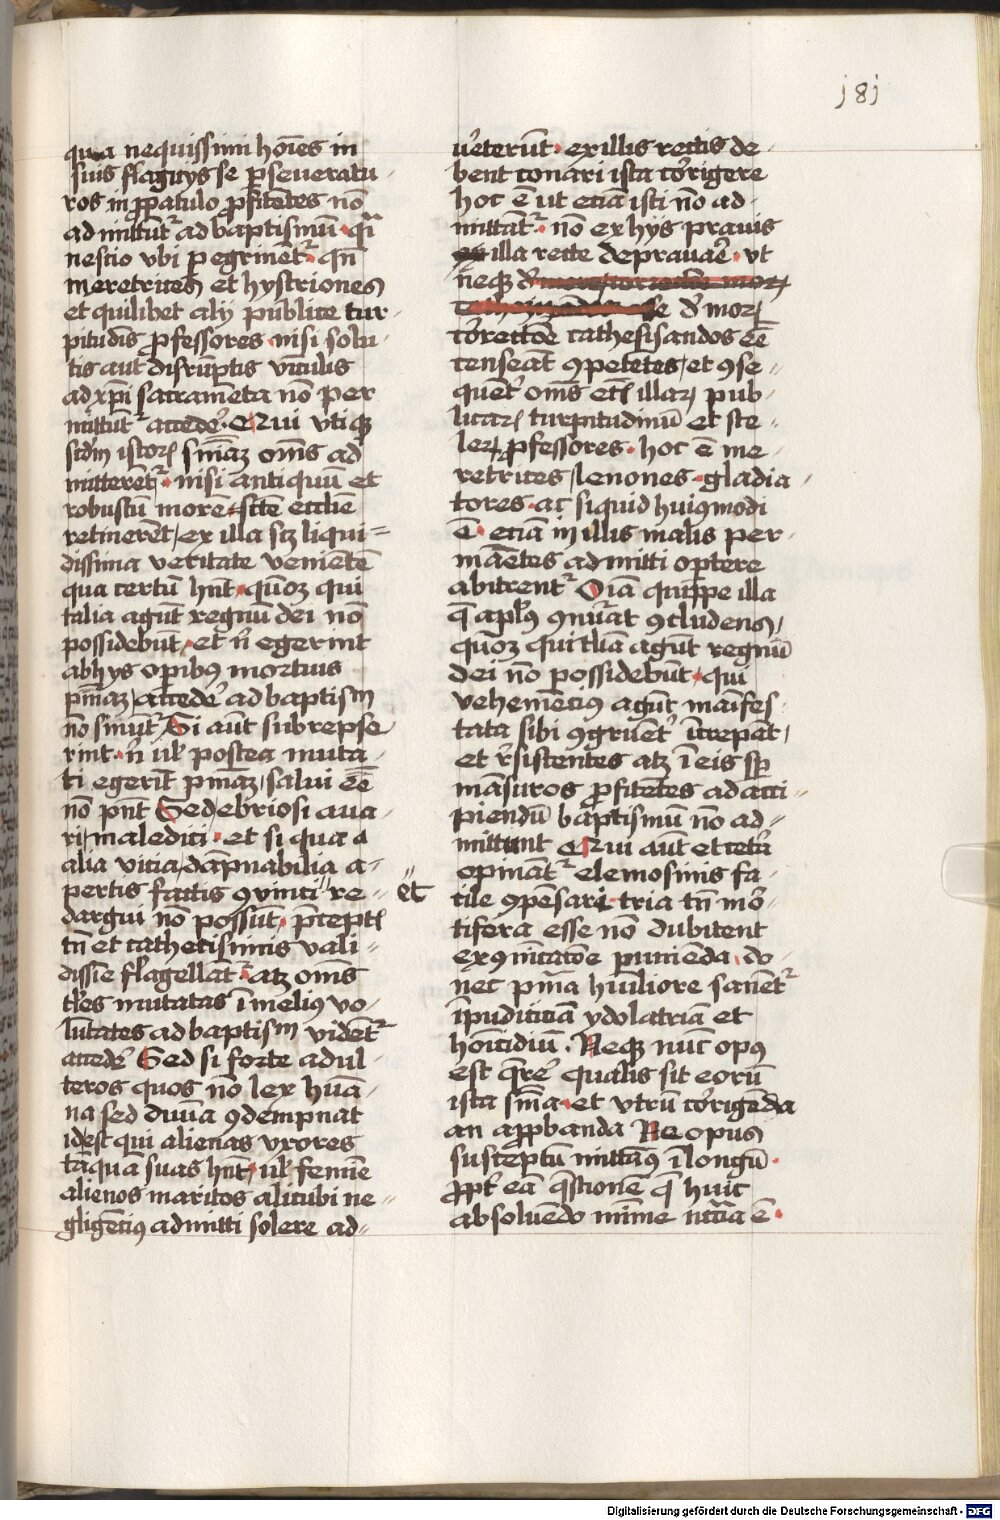 j8j
quia nequissimi hoīes in
suis flagitijs se ꝑseueratu
ros in ꝓpatulo ꝓfitētes nō
admittūtᷣ ad baptismū qͣi
nescio vbi ꝑegrinētᷣ qn̄
meretrices et hystriones
et quilibet alij publice tur
pitudīs ꝓfessores nisi solu
tis aut disruptis vīculis
ad xp̄i sacramēta nō per
mittūtᷣ accedeᷣ Qui vtiqꝫ
scd̓m istoꝝ sn̄iaꝫ om̄s ad
mitterētᷣ nisi antiquū et
robustū morē scē ecclīe
retinerēt ex illa scꝫ liqui
dissima veritate venientē
qua certū hn̄t qm̄ qui
talia agūt regnū dei nō
possidebūt et n̄ egerint
ab hijs oꝑibꝰ mortuis
pn̄iaꝫ accedeᷣ ad baptism
nō sinūtᷣ Si aūt subrepse
rint n̄ ul̓ postea muta
ti egerīt pn̄iaꝫ salui eē
nō pn̄t Sed ebriosi aua
ri maledici et si qua
alia vitia dāpnabilia a
pertis factis ꝯuinci re
dargui nō possūt p̄ceptꝭ
tn̄ et cathecismis vali
dissīe flagellātᷣ atꝫ om̄s
tl̓es mutatas ī meliꝰ vo
lūtates ad baptism vidētᷣ
accedeᷣ Sed si forte adul
teros quos nō lex hūa
na sed diuīa ꝯdempnat
id est qui alienas vxores
tāquā suas hn̄t ul̓ femīe
alienos maritos alicubi ne
gligēciꝰ admitti solere ad
et
u͛terūt ex illis rectis de
bent conari ista corrigere
hoc ē ut etiā isti nō ad
mittātᷣ nō ex hijs prauis
illa recte deprauaᷣe vt
neqꝫ
de moꝝ
correctōe cathezisandos eē
censeāt ꝯpetētes et ꝯse
quēt̓ om̄s etͥ illaꝝ pub
licaꝝ turpitudinū et sce
leꝝ ꝓfessores hoc ē me
retrices lenones gladia
tores ac si quid huiꝰmodi
ē etiā in illis malis per
manētes admitti optere
abitrentᷣ Oīa quippe illa
q̄ apl̓us ꝯnūat ꝯcludens
qm̄ qui tlīa agūt regnū
dei nō possidebūt qui
vehemēciꝰ agūt mānifes
tata sibi ꝯgruēt̓ īcrepāt
et r̓sistentes atꝫ ī eis sp̄
māsuros ꝓfitētes ad acci
piendū baptismū nō ad
mittunt Qui aūt et ceteᷣa
opinātᷣ elemosinis fa
cile ꝯpēsari tria tn̄ moᷣ
tifera esse nō dubitent
exꝯmūicatōe puniēda do
nec pn̄ia hūiliore sanētᷣ
īpudicitiā ydolatriā et
homicidiū Neqꝫ nūc opꝰ
est q̄reᷣ qualis sit eorū
ista sn̄ia et vtrū corrigēda
an aꝓbanda Ne opus
susceptū mittāꝰ ī longū
ꝓpt̓ eā q̄stionē q̄ huic
absoluēdo mīme nccīa ē
Digitalisierung gefördert durch die Deutsche Forschungsgemeinschaft - DFG